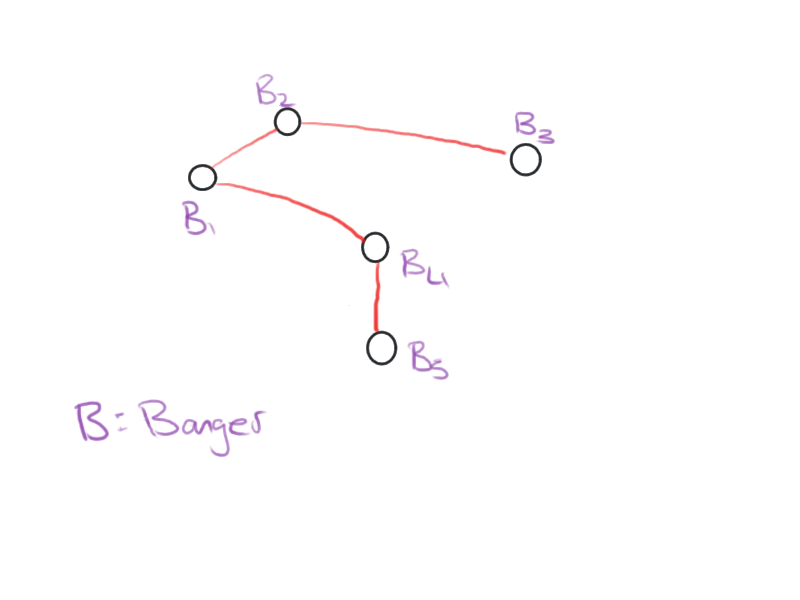 B₂
B₃
B₁
B₄
B₅
B: Banger